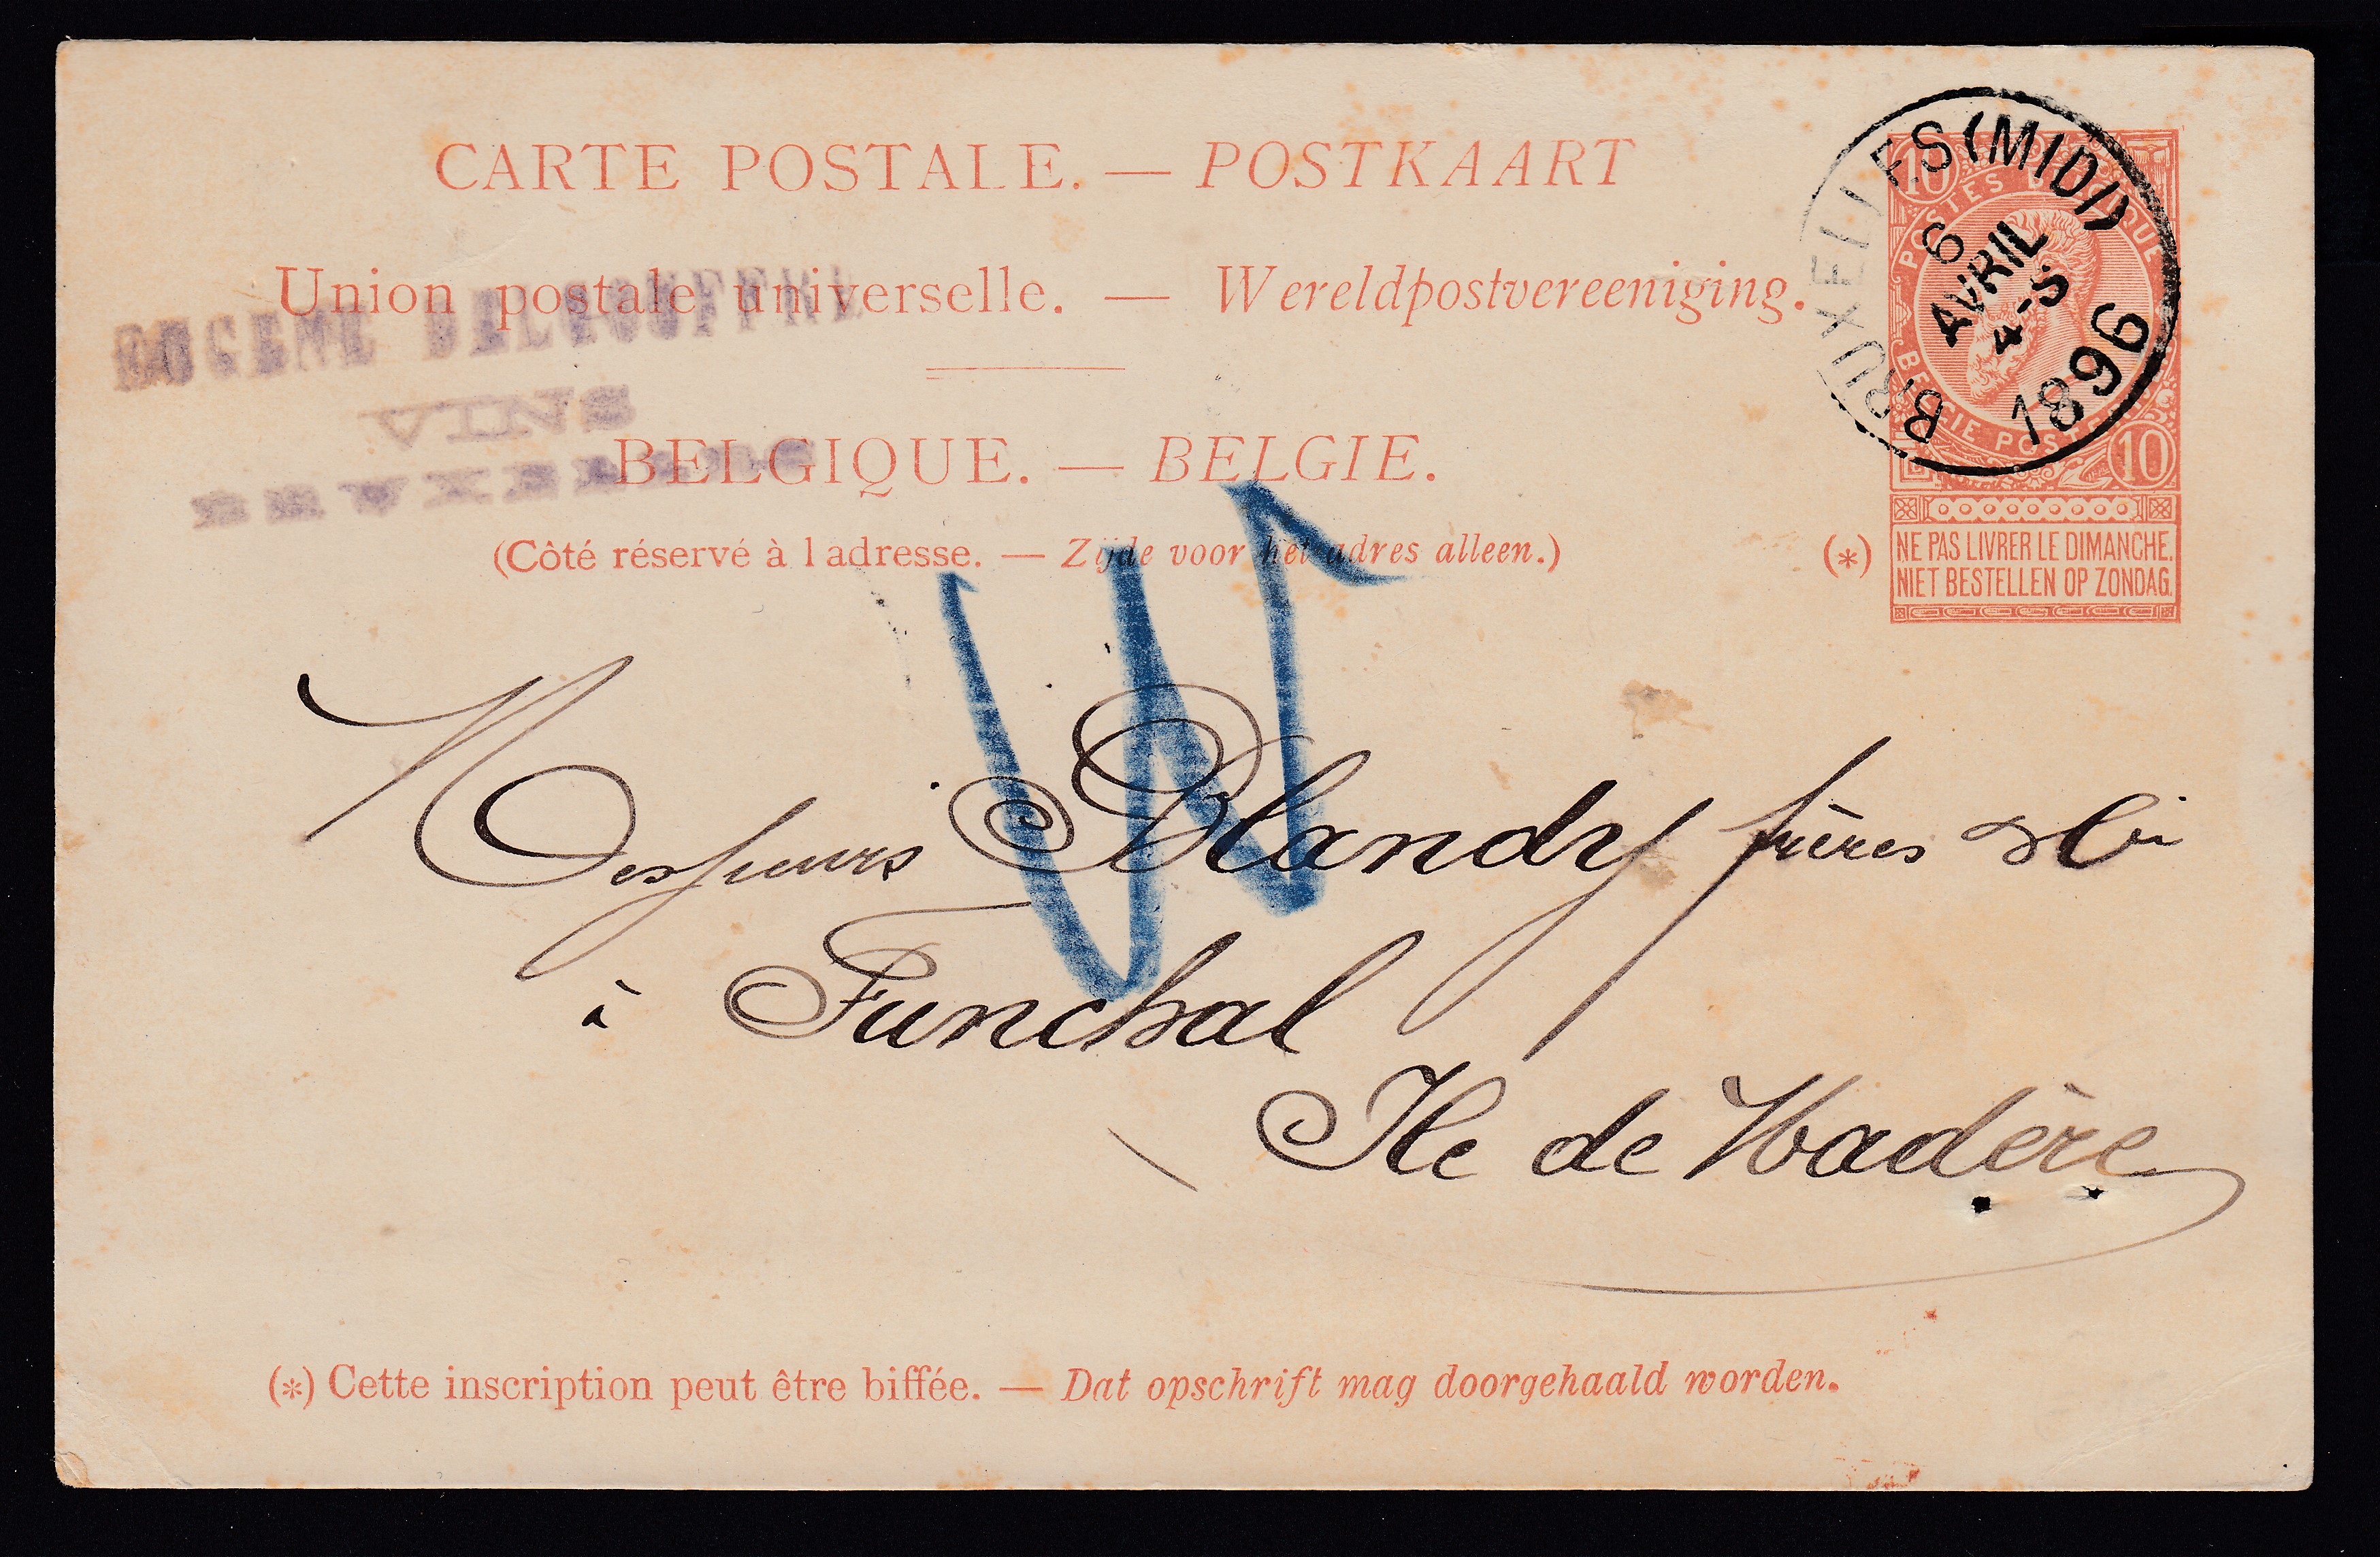 CARTE POSTALE. — POSTKAART
Union postale universelle. — Wereldpostvereeniging.
EUGENE
VINS
BRUXELLES
BELGIQUE. — BELGIE.
(Côté réservé à l adresse. — Zijde voor het adres alleen.)
BRUXELLES (MIDI)
6
AVRIL
4-S
1896
10
POSTES BELGIQUE
BELGIE POST
10
(*) NE PAS LIVRER LE DIMANCHE.
NIET BESTELLEN OP ZONDAG.
Messieurs Blandy frères & Cie
à Funchal
Ile de Madère
(*) Cette inscription peut être biffée. — Dat opschrift mag doorgehaald worden.